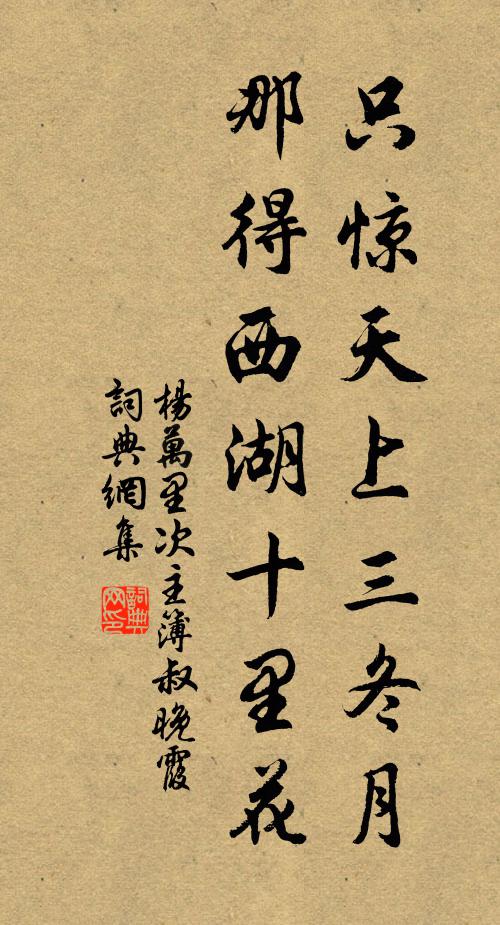 只惊天上三冬月
那得西湖十里花
楊萬里次主簿叔晚霞
詞典網集
詞典网印